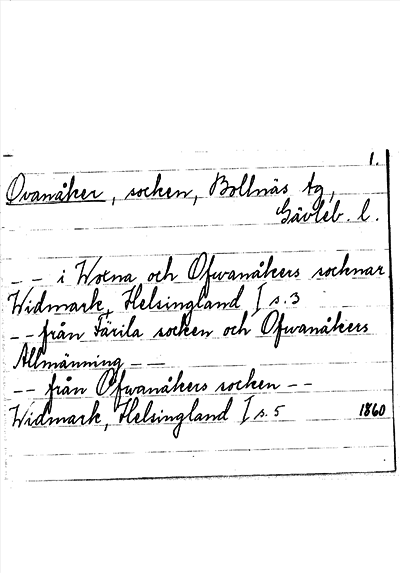 1.
Ovanåker, socken, Bollnäs tg,
Gävleb. l.
-- i Woxna och Ofwanåkers socknar
Widmark, Helsingland I s. 3
-- från Färila socken och Ofwanåkers
Allmänning ---
-- från Ofwanåkers socken --
Widmark, Helsingland I s. 5 1860